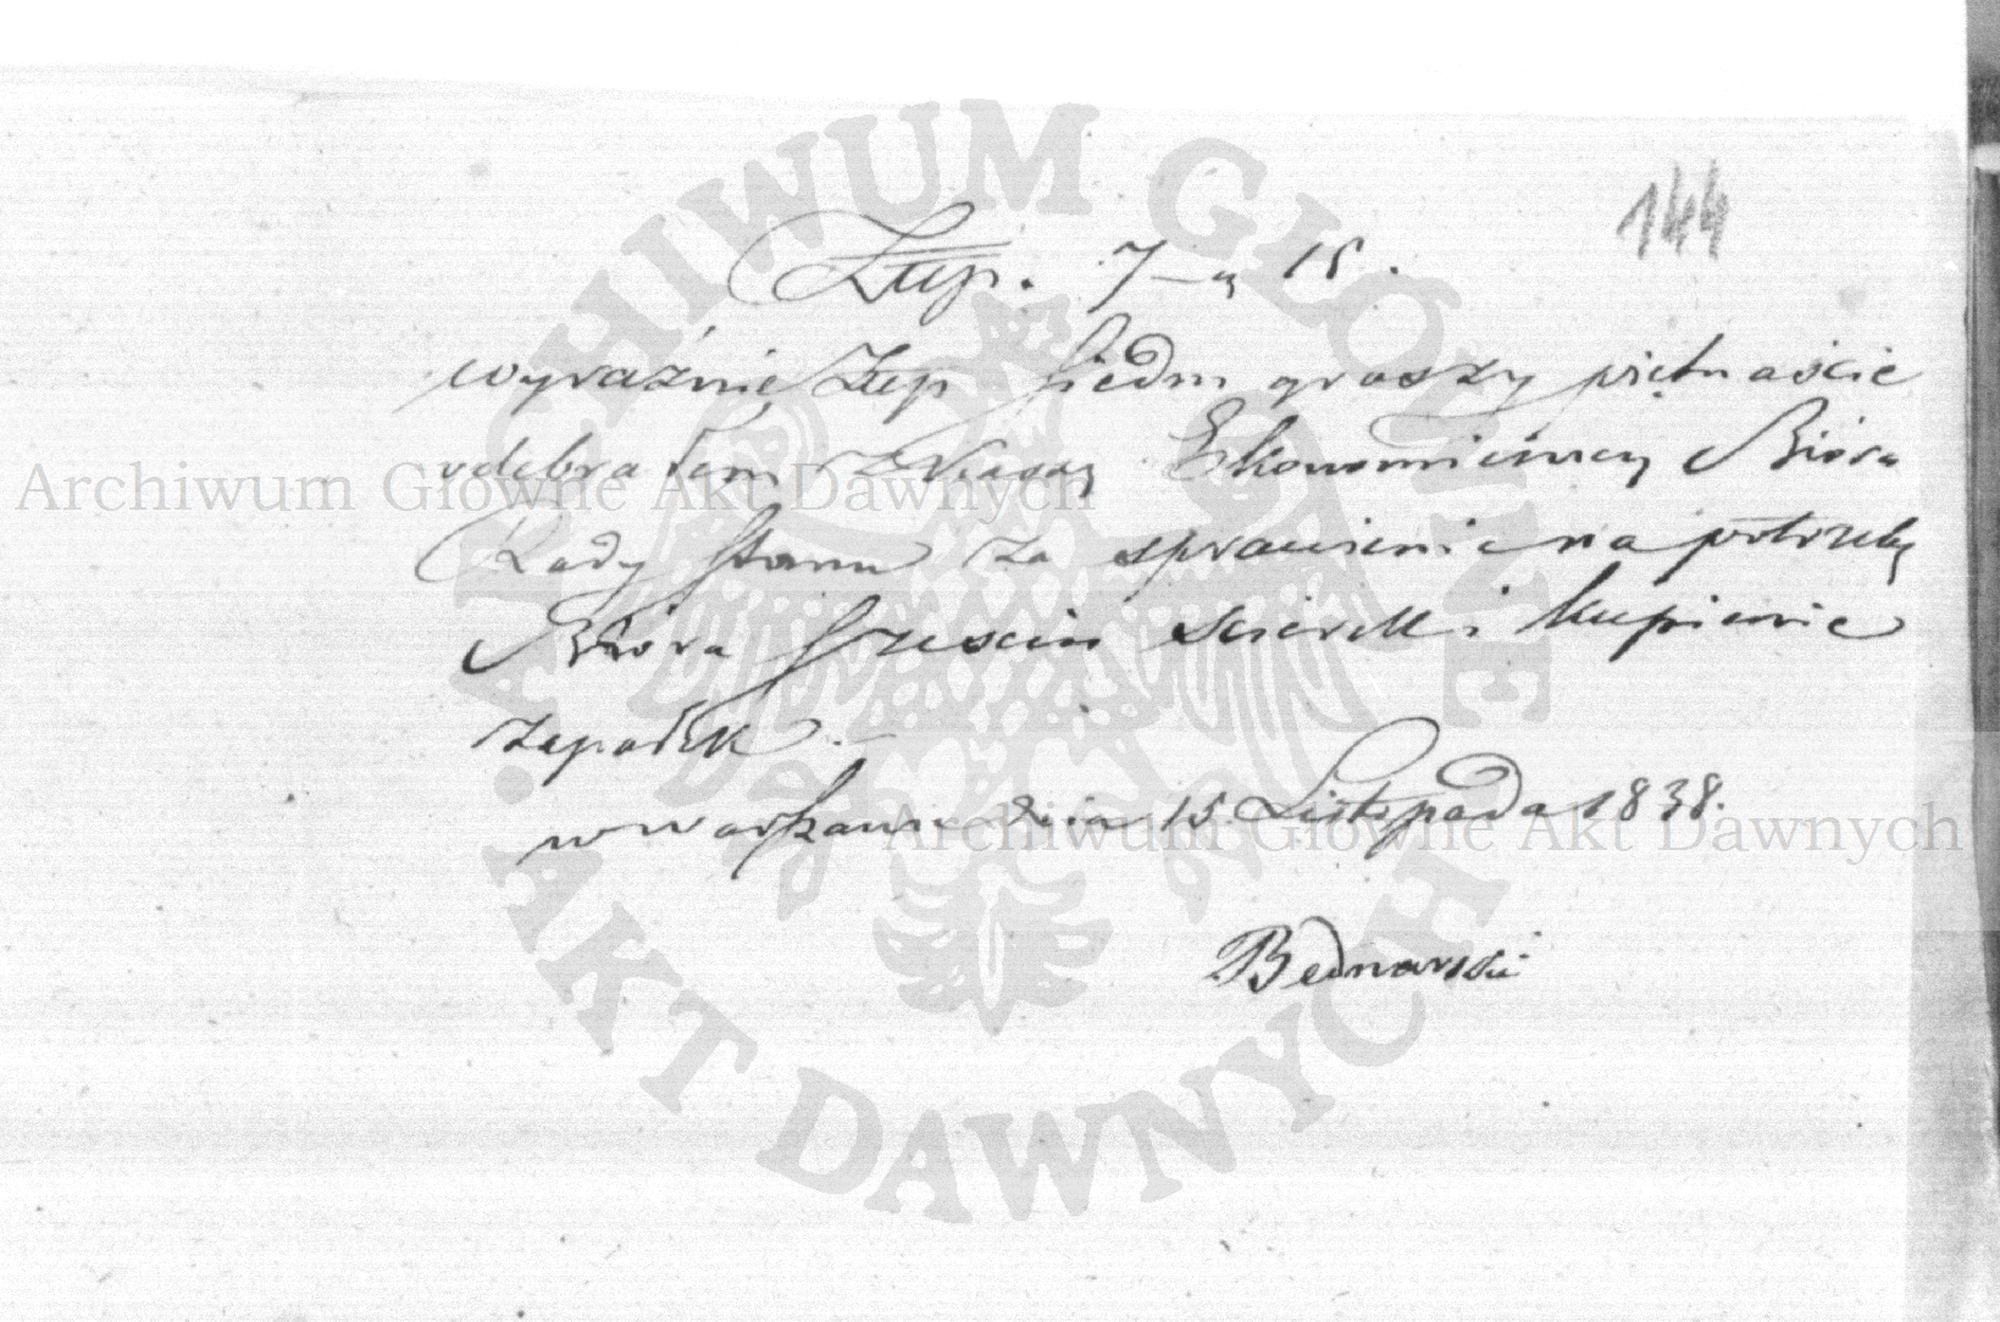 144
Złtp. 7 – g 15.
wyraźnie Złtp siedm groszy piętnaście
odebrałem z Kassy Ekonomiczney Bióra
Rady Stanu za sprawienie na potrzeby
Bióra sześciu ścierek i kupienie
zapałek. –
w Warszawie dnia 15 Listopada 1838.
Bednarski
ARCHIWUM GŁÓWNE AKT DAWNYCH
Archiwum Główne Akt Dawnych
Archiwum Główne Akt Dawnych